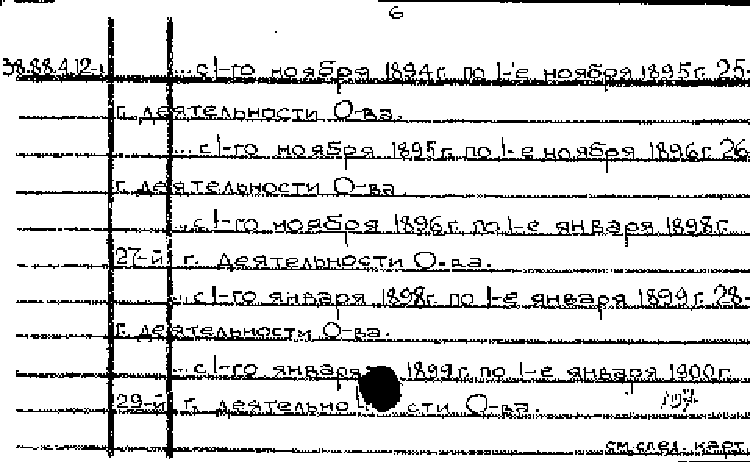 6
38.88.4.12-1 ... с 1-го ноября 1894 г. по 1-е ноября 1895 г. 25-
г. деятельности О-ва.
... с 1-го ноября 1895 г. по 1-е ноября 1896 г. 26-
г. деятельности О-ва.
... с 1-го ноября 1896 г. по 1-е января 1898 г.
27-й г. деятельности О-ва.
... с 1-го января 1898 г. по 1-е января 1899 г. 28-
г. деятельности О-ва.
... с 1-го января 1899 г. по 1-е января 1900 г.
29-й г. деятельности О-ва.
см. след. карт.